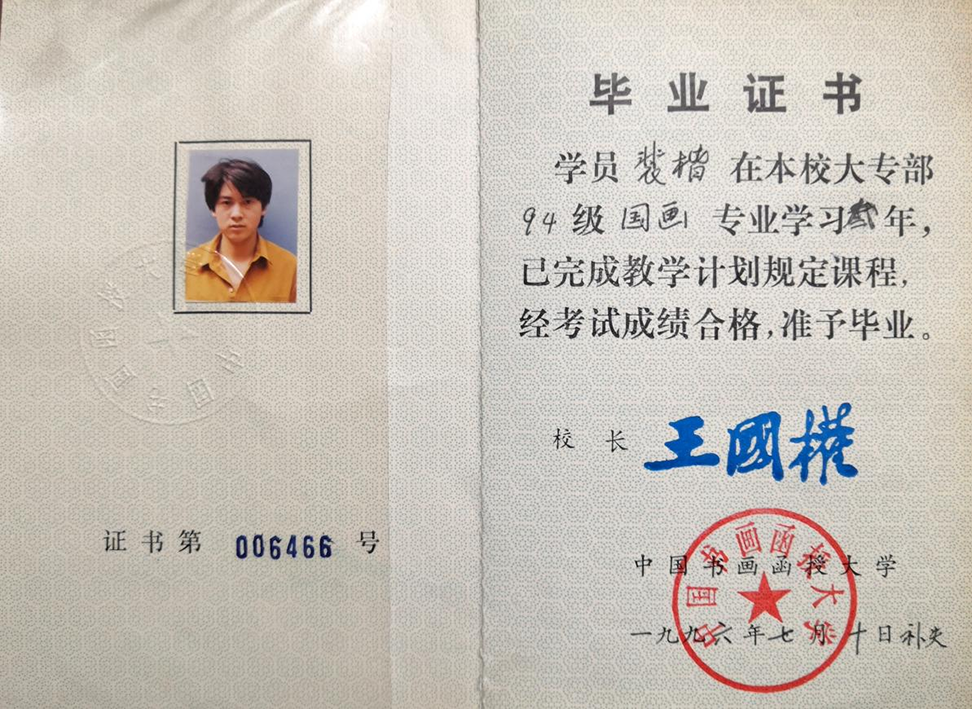 证书第 006466 号
毕业证书
学员 裴楷 在本校大专部
94 级 国画 专业学习叁年，
已完成教学计划规定课程，
经考试成绩合格，准予毕业。
校 长 王國權
中国书画函授大学
一九九六年七月十日补发
中国书画函授大学